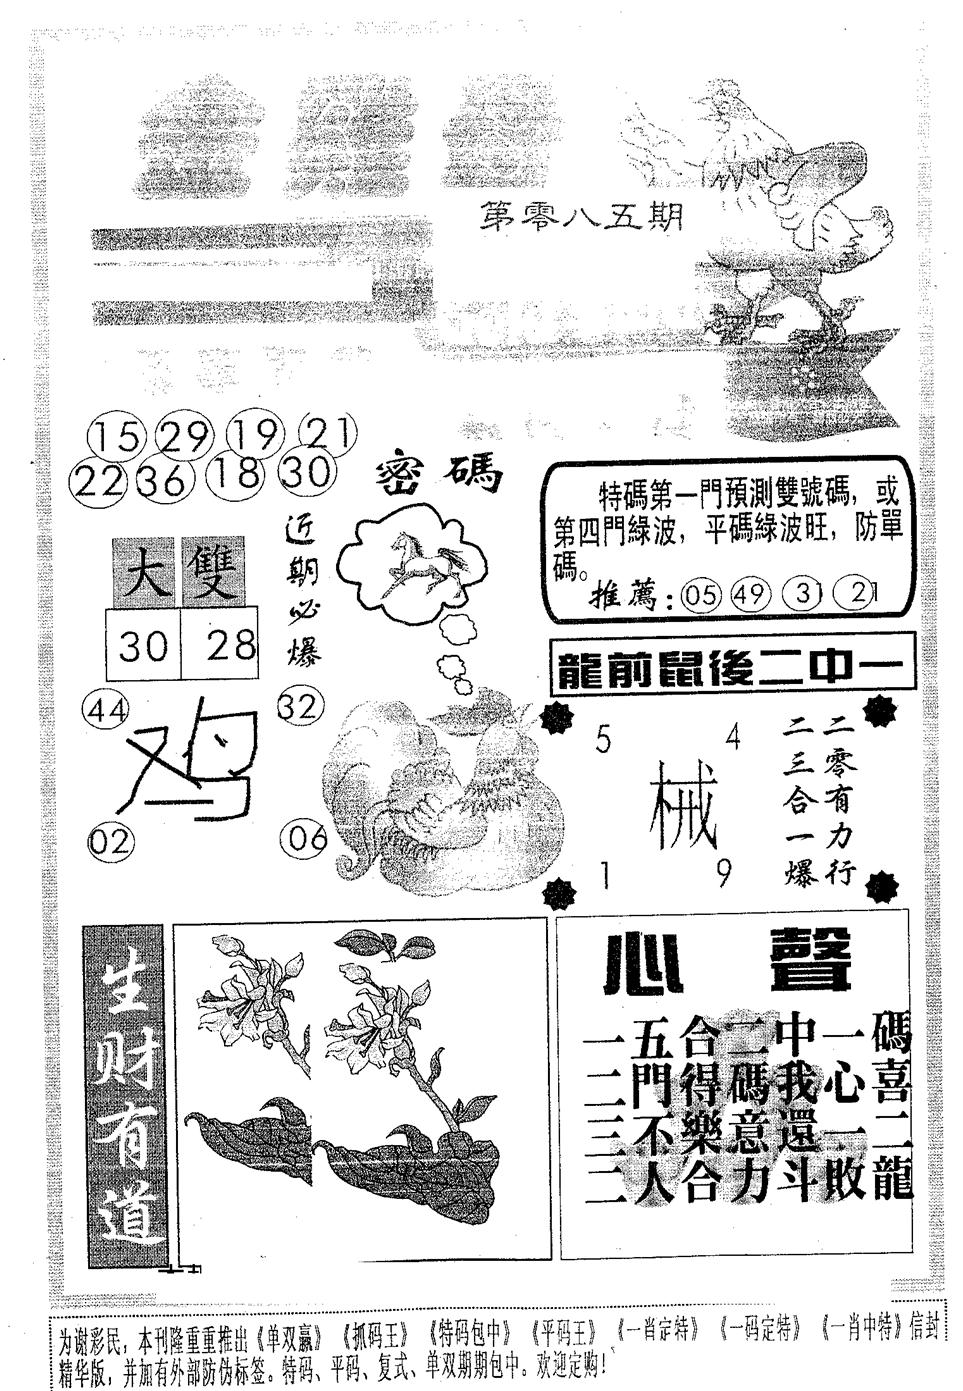 第零八五期
15 29 19 21
22 36 18 30
密碼
特碼第一門預測雙號碼，或
第四門綠波，平碼綠波旺，防單
碼。
推薦：05 49 31 21
大 雙
30 28
近期必爆
龍前鼠後二中一
44 32
鸡
02 06
5 4
械
1 9
二零有力行
二三合一爆
生财有道
心聲
一五合二中一碼
二門得碼我心喜
三不樂意還一二
二人合力斗敗龍
为谢彩民，本刊隆重重推出《单双赢》《抓码王》《特码包中》《平码王》《一肖定特》《一码定特》《一肖中特》信封
精华版，并加有外部防伪标签。特码、平码、复式、单双期期包中。欢迎定购！